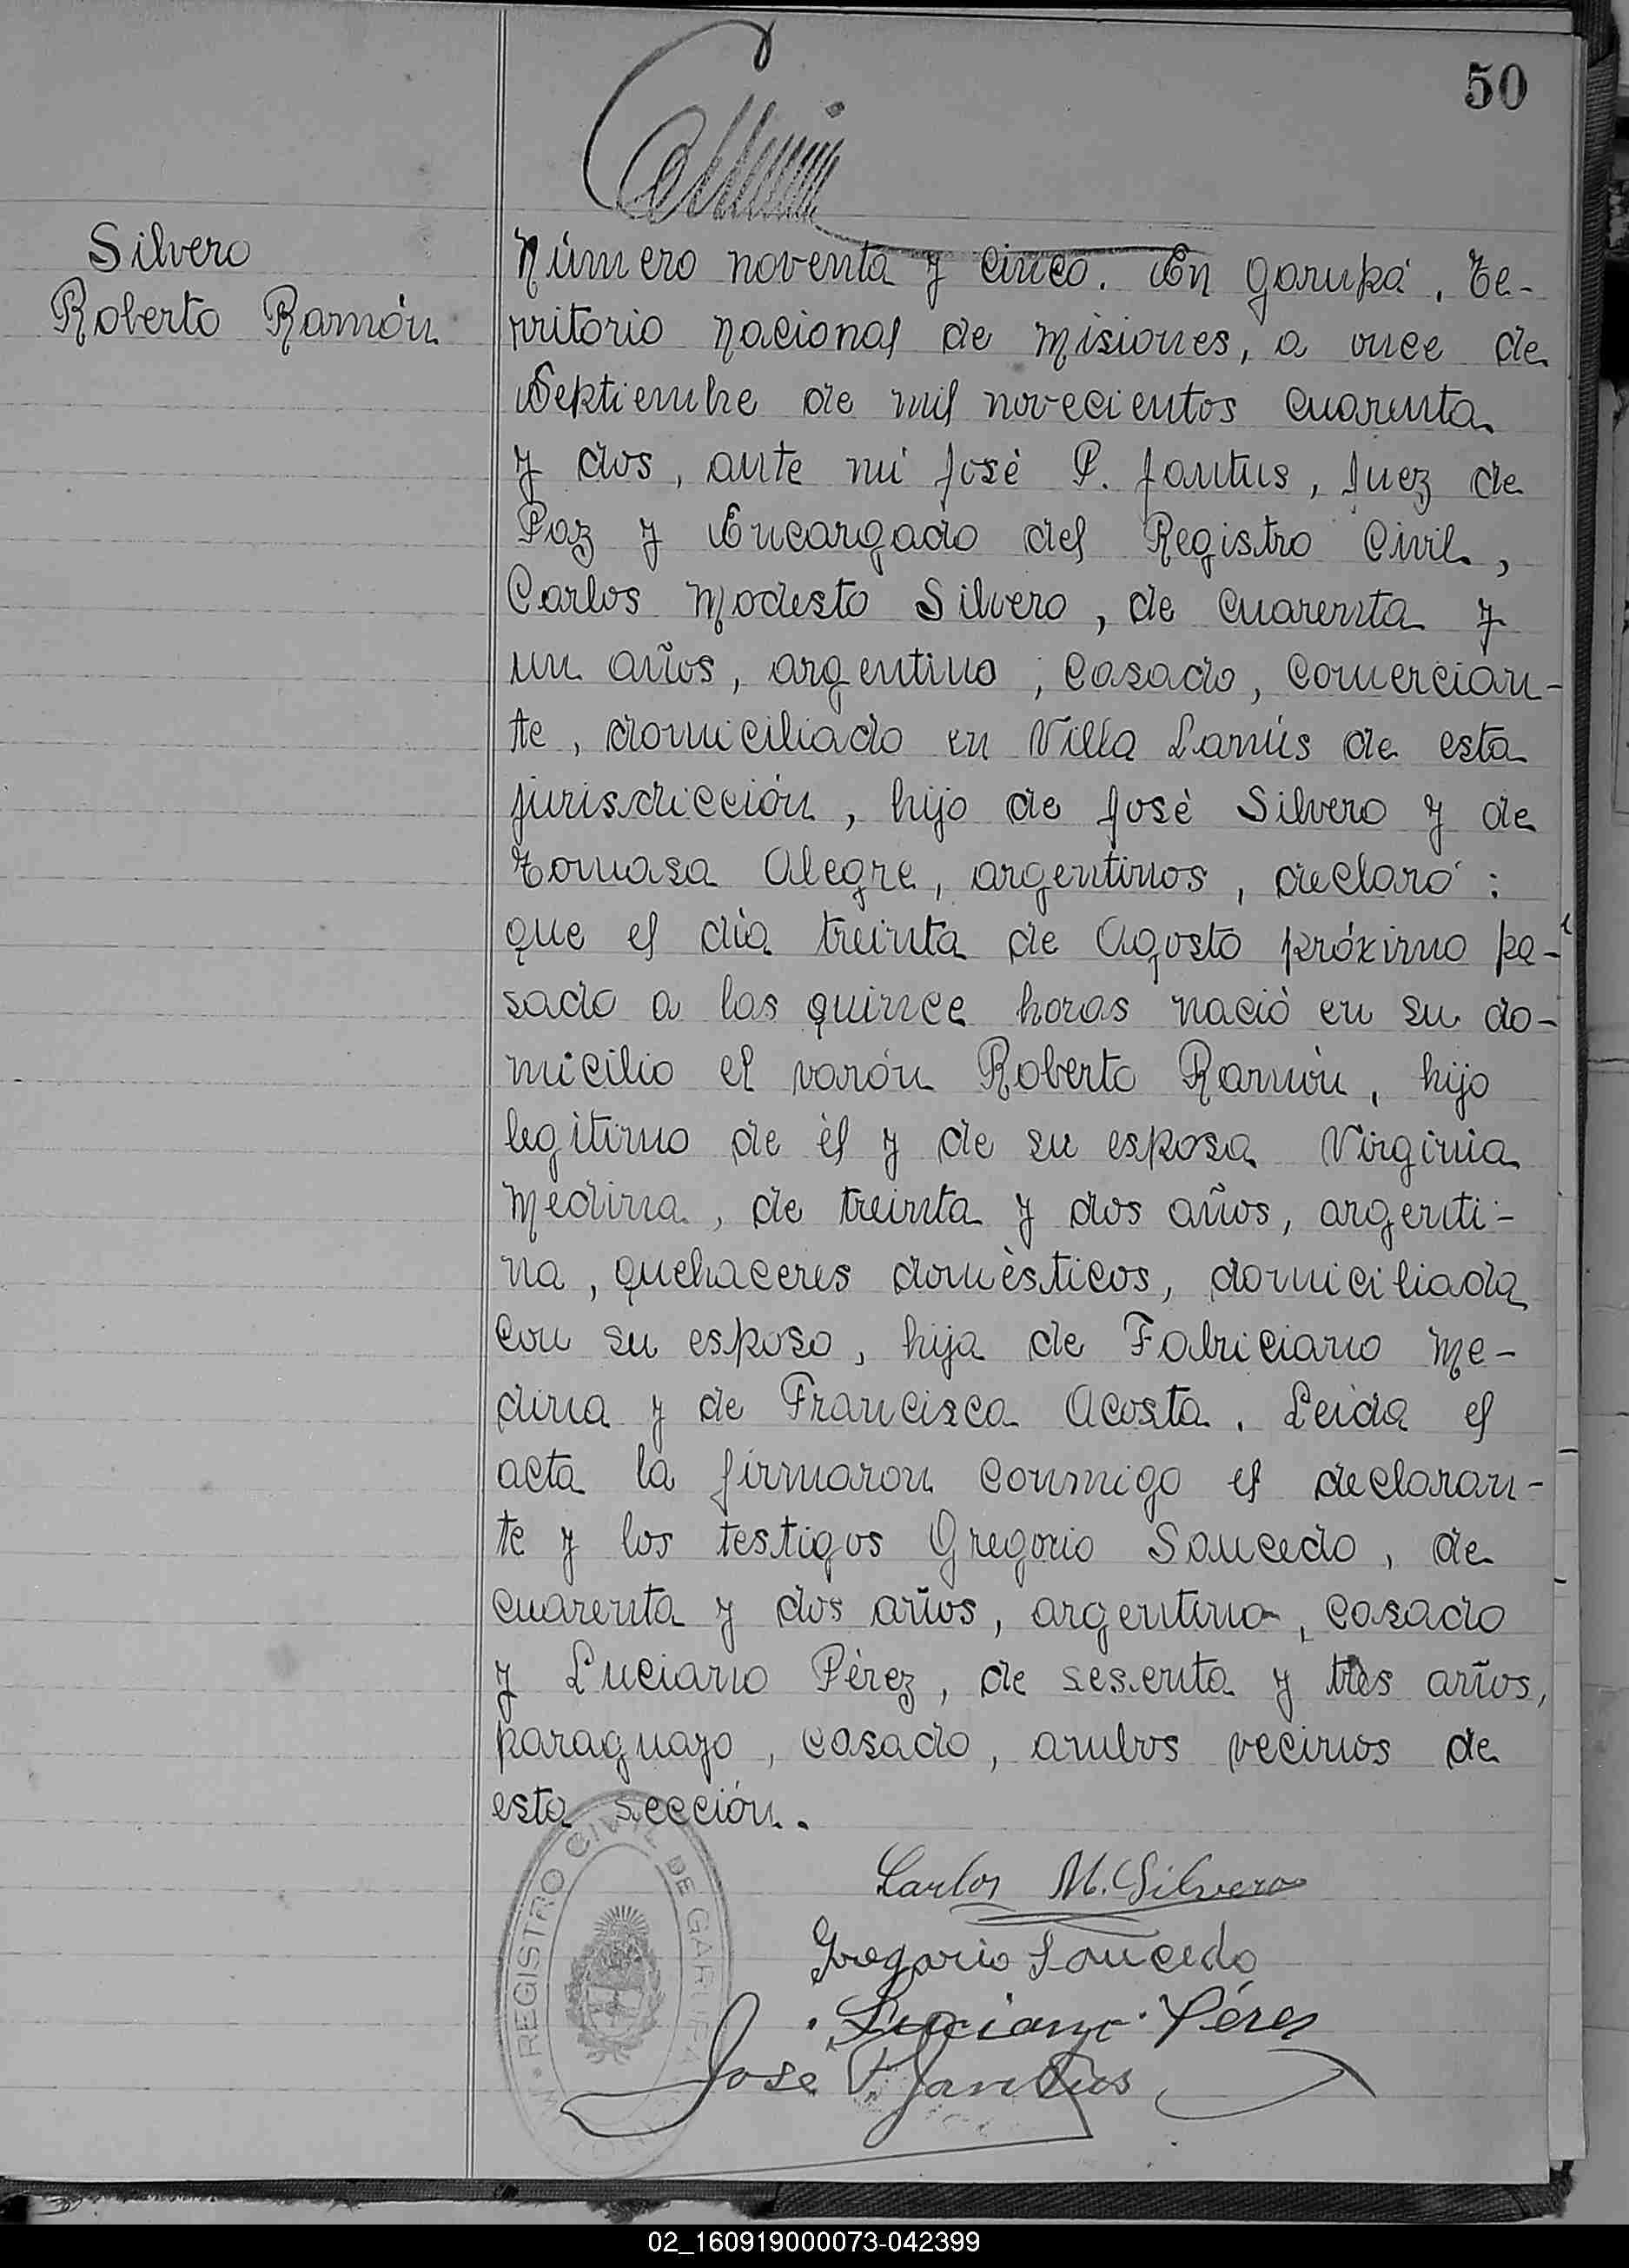 50
Silvero
Roberto Ramón
Número noventa y cinco. En Garupá, Te-
rritorio Nacional de Misiones, a once de
Septiembre de mil novecientos cuarenta
y dos, ante mí José P. Jantus, Juez de
Paz y Encargado del Registro Civil,
Carlos Modesto Silvero, de cuarenta y
un años, argentino, casado, comercian-
te, domiciliado en Villa Lanús de esta
jurisdicción, hijo de José Silvero y de
Tomasa Alegre, argentinos, declaró:
que el día treinta de Agosto próximo pa-
sado a las quince horas nació en su do-
micilio el varón Roberto Ramón, hijo
legítimo de él y de su esposa Virginia
Medina, de treinta y dos años, argenti-
na, quehaceres domésticos, domiciliada
con su esposo, hija de Fabriciano Me-
dina y de Francisca Acosta. Leída el
acta la firmaron conmigo el declaran-
te y los testigos Gregorio Saucedo, de
cuarenta y dos años, argentino, casado
y Luciano Pérez, de sesenta y tres años,
paraguayo, casado, ambos vecinos de
esta sección.
REGISTRO CIVIL DE GARUPA
Carlos M. Silvero
Gregorio Saucedo
Luciano Pérez
José P. Jantus
02_160919000073-042399